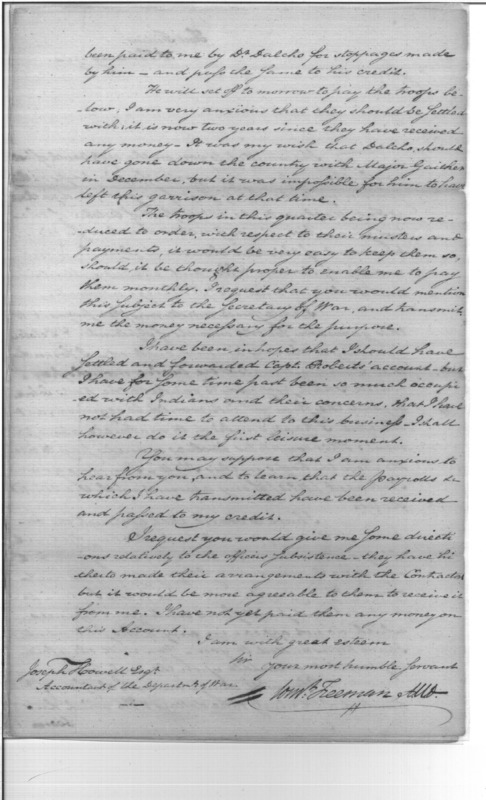 been paid to me by Dr. Dalcho for stoppages made
by him — and pass the same to his credit.
He will set off to morrow to pay the troops be-
low, I am very anxious that they should be settled
with; it is now two years since they have received
any money — It was my wish that Dalcho, should
have gone down the country with Major Gaither
in December, but it was impossible for him to have
left this garrison at that time.
The troops in this quarter being now re-
duced to order, with respect to their musters and
payments, it would be very easy to keep them so,
should it be thought proper to enable me to pay
them monthly. I request that you would mention
this subject to the Secretary of War, and transmit
me the money necessary for the purpose.
I have been in hopes that I should have
settled and forwarded Capt. Roberts' account - but
I have for some time past been so much occupi-
ed with Indians and their concerns, that I have
not had time to attend to this business. I shall
however do it the first leisure moment.
You may suppose that I am anxious to
hear from you, and to learn that the Payrolls &c
which I have transmitted have been received
and passed to my credit.
I request you would give me some directi-
ons relatively to the officers subsistence - they have hi-
therto made their arrangements with the Contractor
but it would be more agreeable to them to receive it
from me. I have not yet paid them any money on
this Account.
I am with great esteem
Sir
your most humble servant
Joseph Howell Esqr.
Accountant of the Departmt. of War.
Freeman